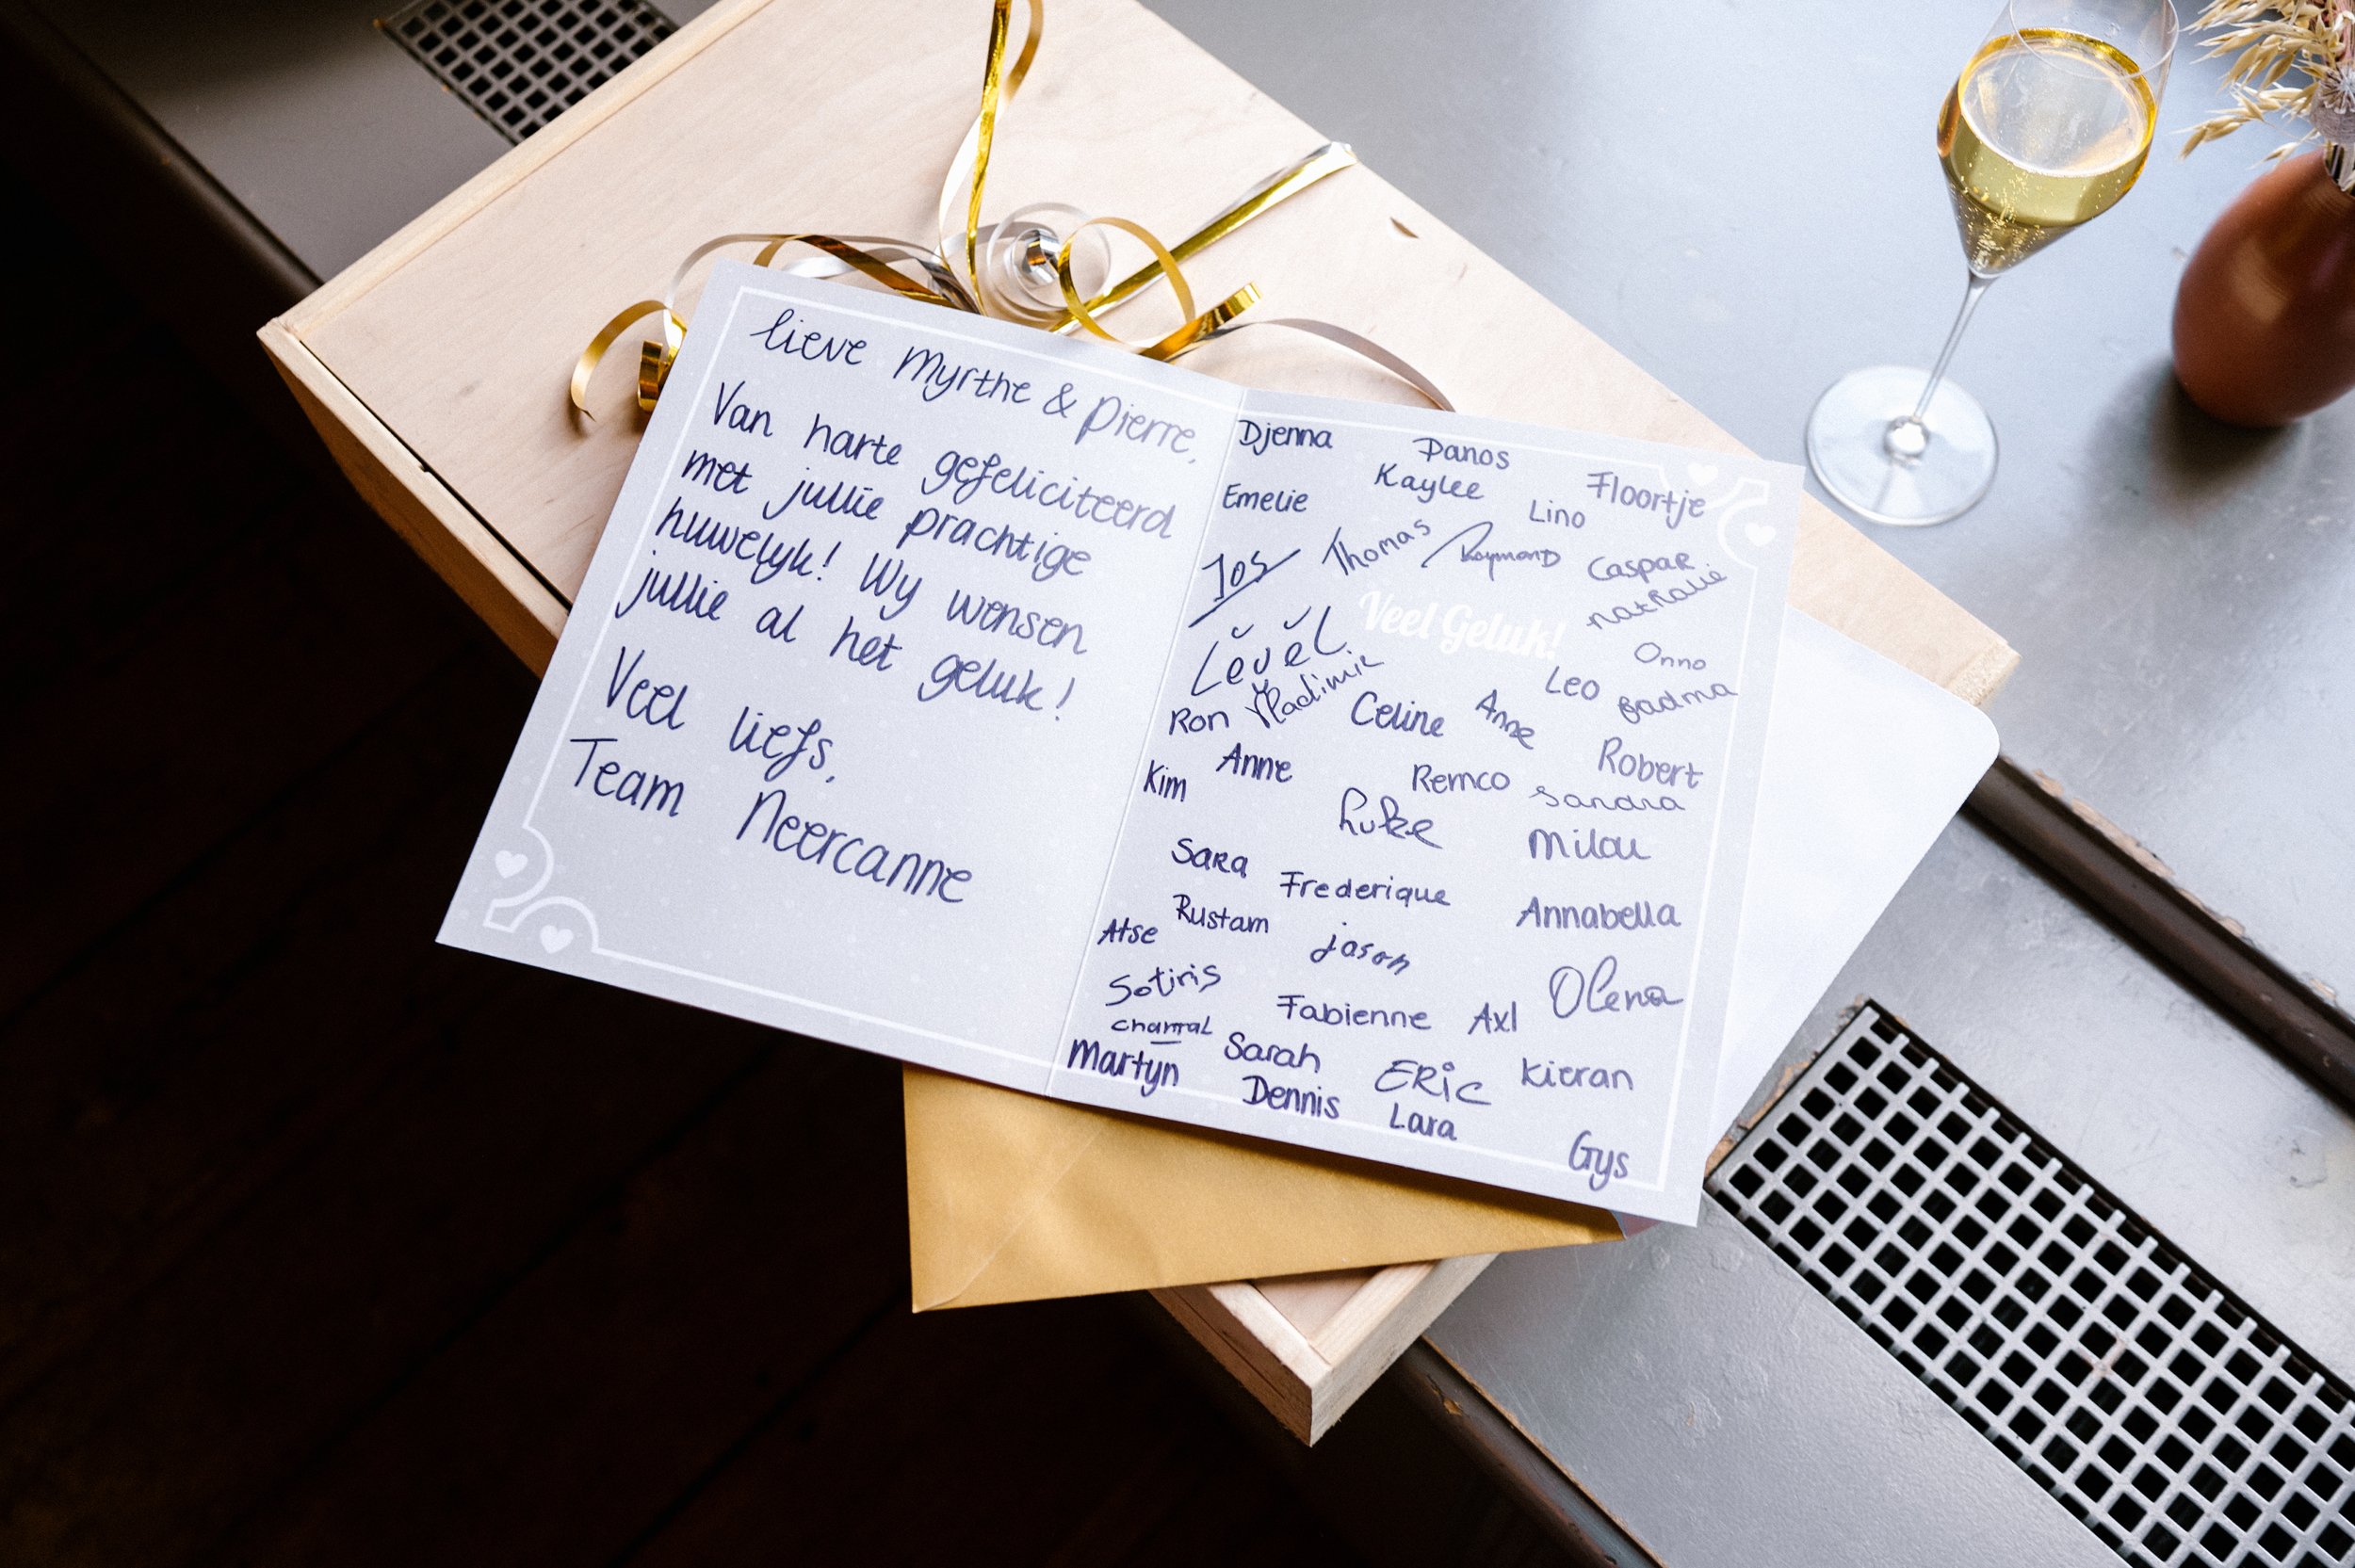 lieve Myrthe & Pierre,
Van harte gefeliciteerd
met jullie prachtige
huwelyk! Wy wensen
jullie al het geluk!
Veel liefs,
Team Neercanne
Djenna Panos Floortje
Emelie Kaylee Lino
Jos Thomas Raymond Caspar
Nathalie
Veel Geluk!
Levèl Onno
Vladimir Leo fadma
Ron Celine Anne Robert
Kim Anne Remco Sandra
Luke Milou
Sara Frederique Annabella
Atse Rustam jason
Sotiris Fabienne Axl Olena
Chantal Sarah ERiC Kieran
Martyn Dennis Lara
Gys